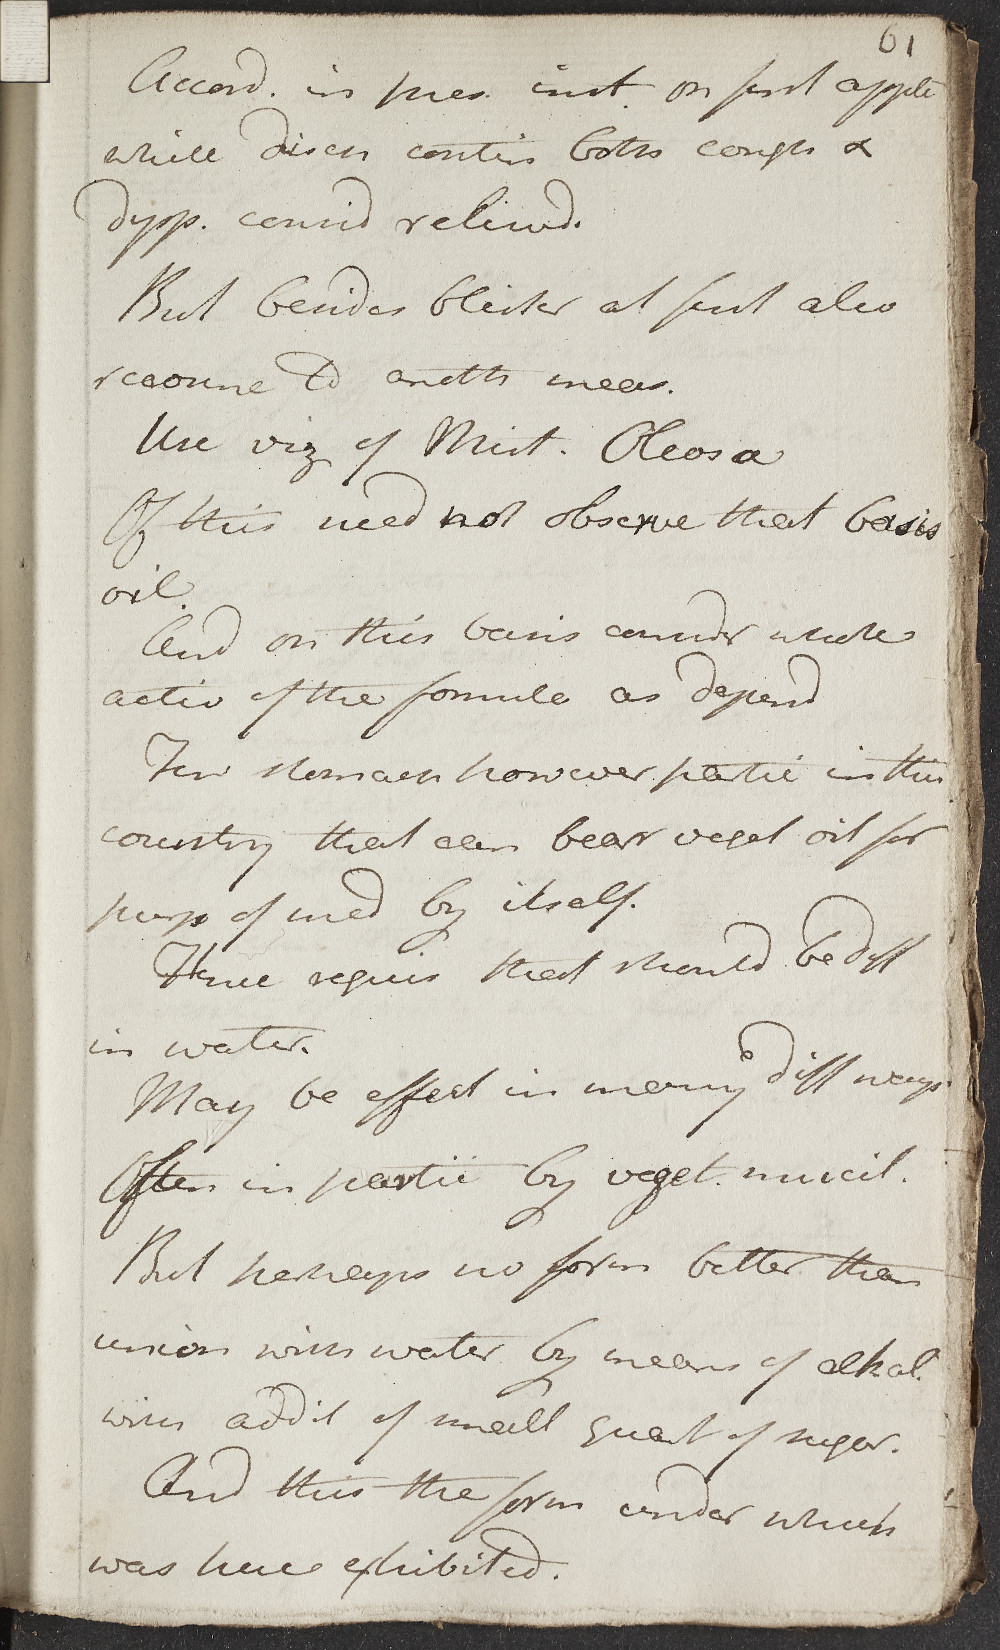 61
Accord. in pres. inst. on first applic
while disch contin both cough &
dysp. consid relievd.
But besides blister at first also
recourse to anoth meas.
Use viz of Mist. Oleosa
Of this need not observe that basis
oil.
And on this basis consider whole
actio of the formula as depend
Few stomach however partic in this
country that can bear veget oil for
purp of med by itself.
Hence requis that should be diff
in water.
May be effect in many diff ways.
Often in partic by veget. mucil.
But perhaps no form better than
union with water by means of alkal.
with addit of small quant of sugar.
And this the form under which
was here exhibited.